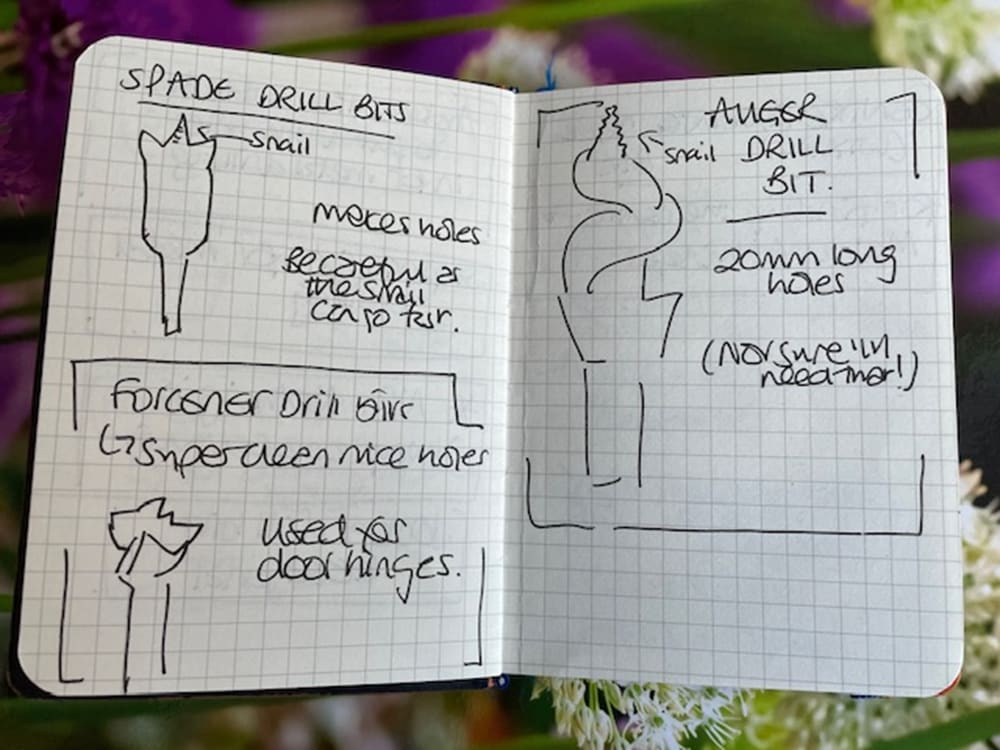 SPADE DRILL BITS
snail
makes holes
Be careful as
the snail
can go far.
Forcener Drill Bits
↳ Super clean nice holes
used for
door hinges.
AUGER
snail DRILL
BIT.
20mm long
holes
(Not sure I'll
need that!)